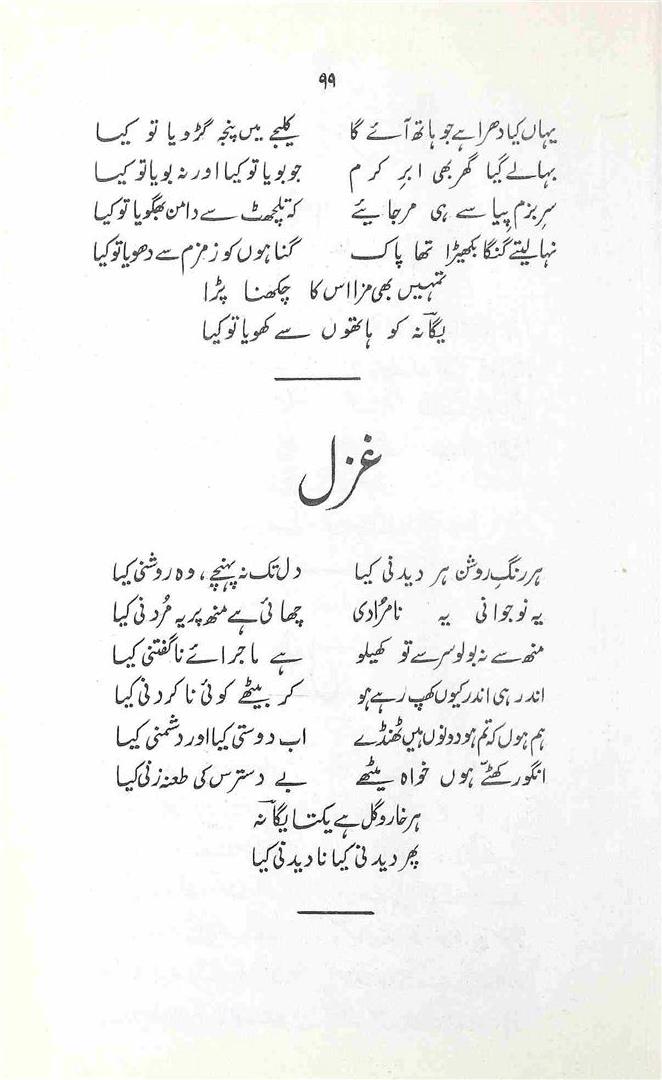 ۹۹
یہاں کیا دھرا ہے جو ہاتھ آئے گا کلیجے میں پنجہ گڑویا تو کیا
بہالے گیا گھر بھی ابرِ کرم جو بویا تو کیا اور نہ بویا تو کیا
سرِ بزم پیاسے ہی مرجائیے کہ تلچھٹ سے دامن بھگویا تو کیا
نہالیتے گنگا بکھیڑا تھا پاک گناہوں کو زمزم سے دھویا تو کیا
تمہیں بھی مزا اس کا چکھنا پڑا
یگانہؔ کو ہاتھوں سے کھویا تو کیا
غزل
ہر رنگِ روشن ہر دیدنی کیا دل تک نہ پہنچے، وہ روشنی کیا
یہ نوجوانی یہ نامُرادی چھائی ہے منھ پر یہ مُردنی کیا
منھ سے نہ بولو سر سے تو کھیلو ہے ماجرائے ناگفتنی کیا
اندر ہی اندر کیوں کھپ رہے ہو کر بیٹھے کوئی ناکردنی کیا
ہم ہوں کہ تم ہو دونوں ہیں ٹھنڈے اب دوستی کیا اور دشمنی کیا
انگور کھٹّے ہوں خواہ میٹھے بے دسترس کی طعنہ زنی کیا
ہر خار و گل ہے یکتا یگانہؔ
پھر دیدنی کیا نادیدنی کیا